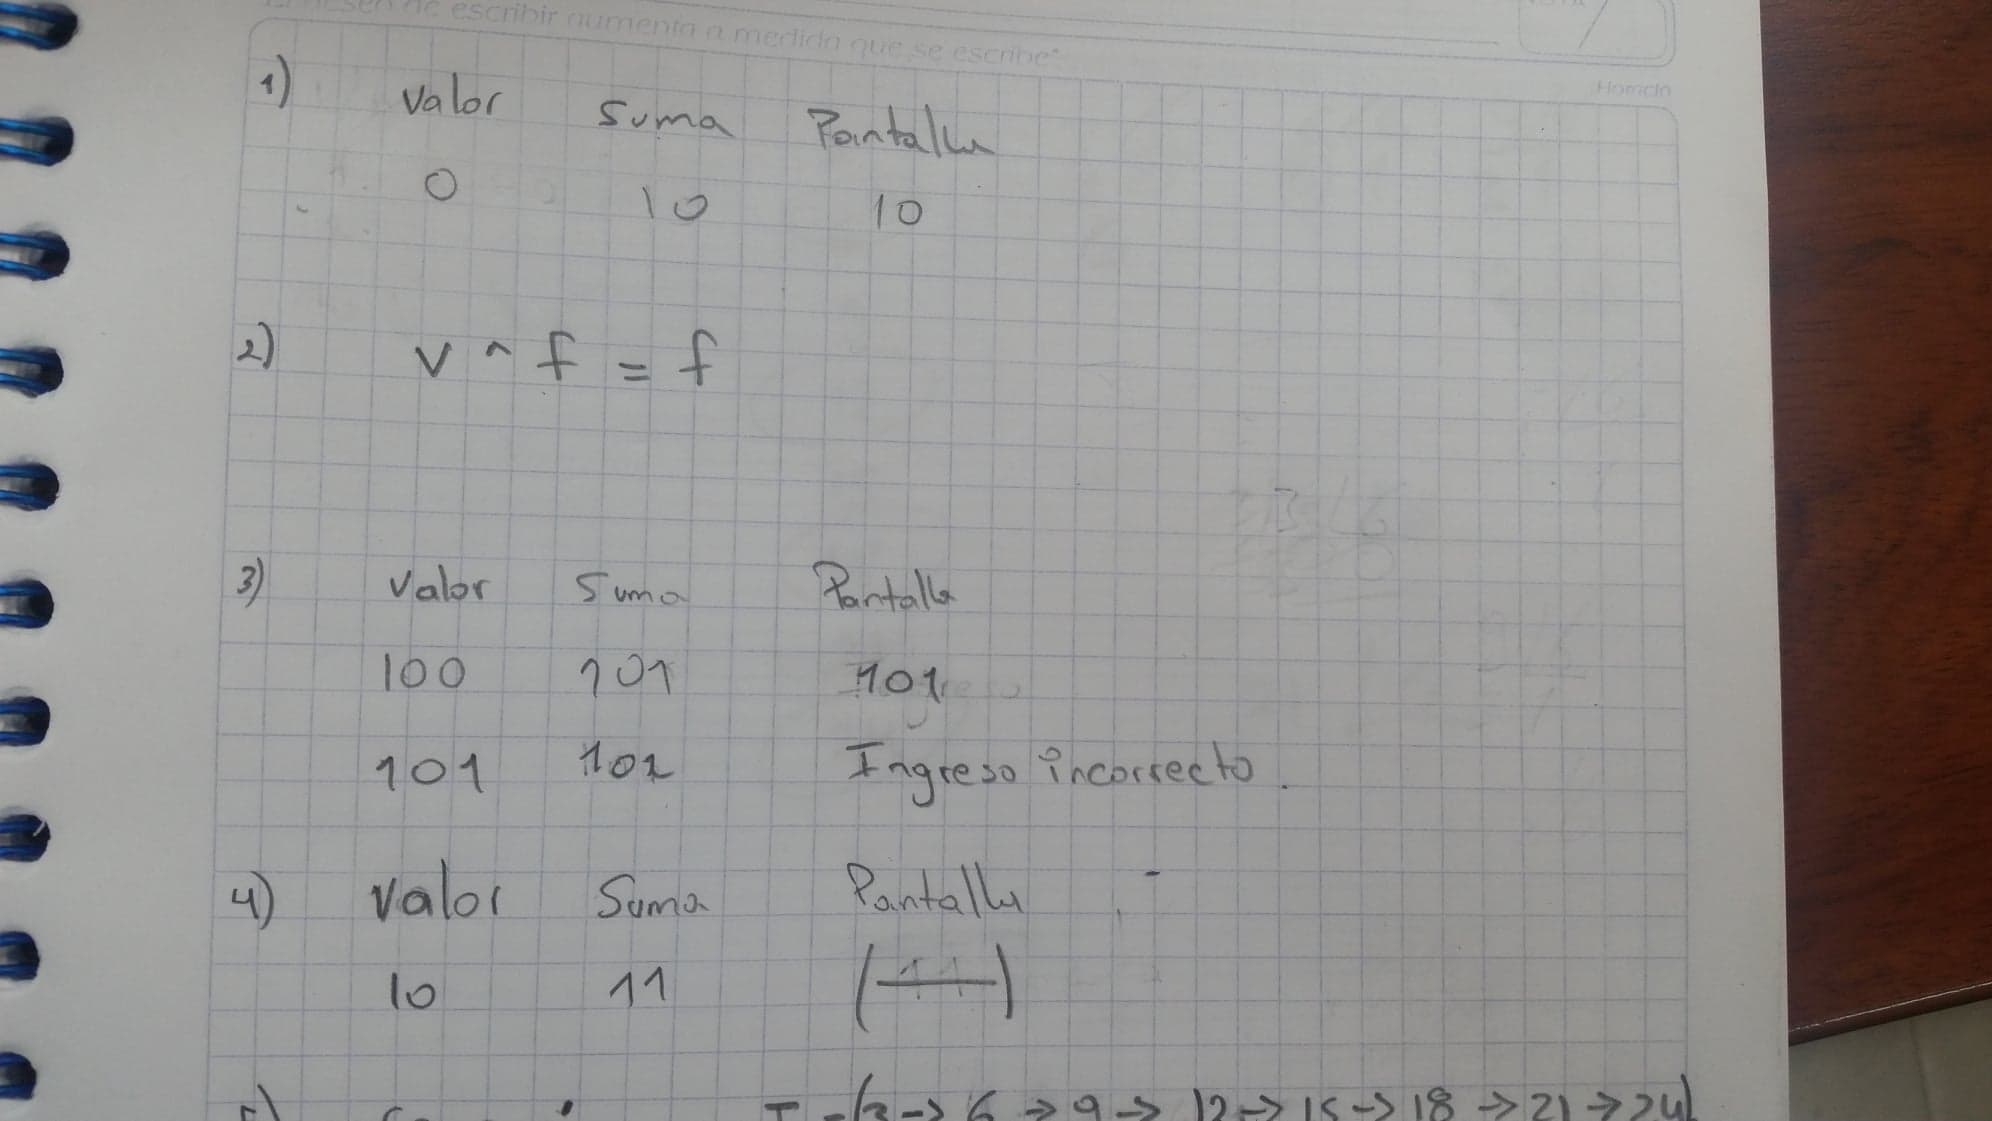 de escribir aumenta a medida que se escribe"
1) Valor Suma Pantalla
0 10 10
2) v ^ f = f
3) Valor Suma Pantalla
100 101 101
101 102 Ingreso incorrecto.
4) Valor Suma Pantalla
10 11 (11)
5) I = (3 → 6 → 9 → 12 → 15 → 18 → 21 → 24)